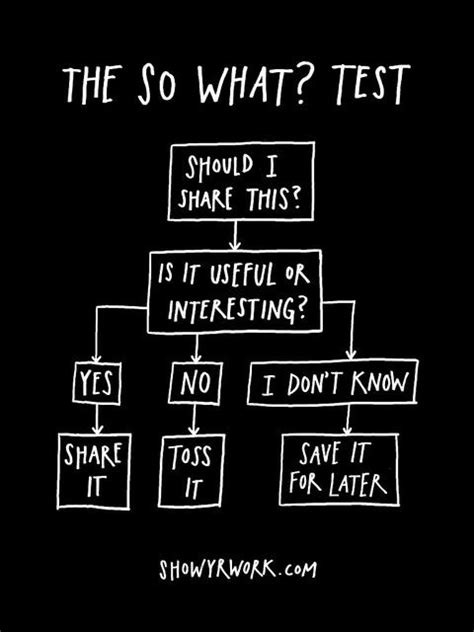 THE SO WHAT? TEST
SHOULD I
SHARE THIS?
IS IT USEFUL OR
INTERESTING?
YES
NO
I DON'T KNOW
SHARE
IT
TOSS
IT
SAVE IT
FOR LATER
SHOWYRWORK.COM